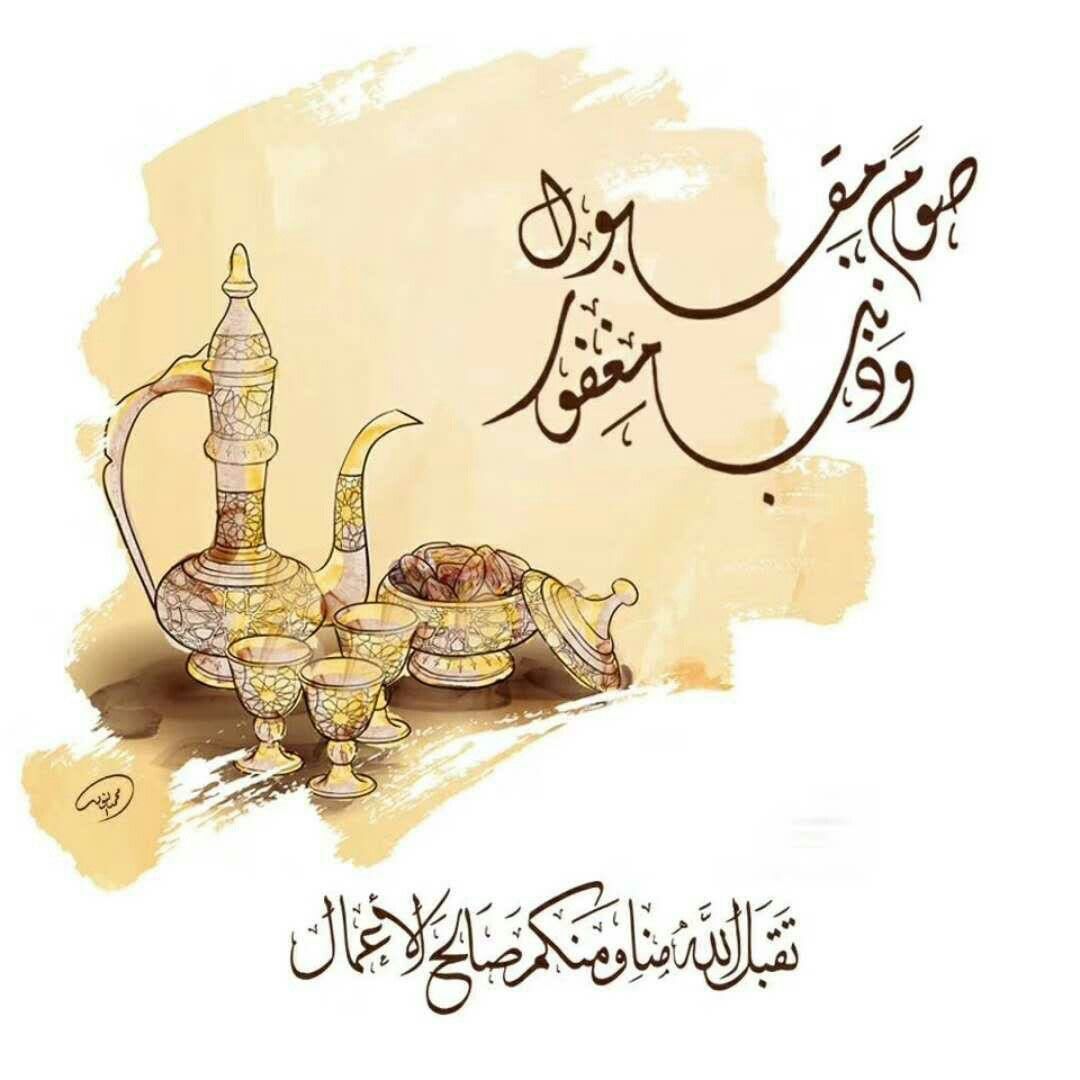 صومً مقبول
وذنب مغفور
تَقَبَل اللَّهُ مِنا وَمَنكم صَالحَ الأعمال